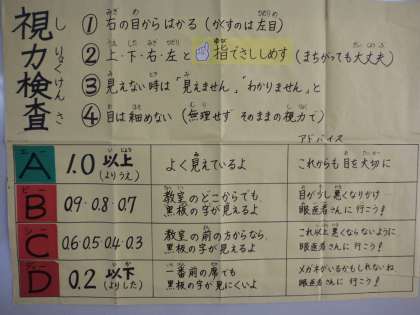 視力検査
① 右の目からはかる (かくすのは左目)
② 上・下・右・左と 指でさししめす (まちがっても大丈夫)
③ 見えない時は「見えません」「わかりません」と
④ 目は細めない (無理せず そのままの視力で)
アドバイス
A 1.0 以上 (よりうえ) よく見えているよ これからも目を大切に
B 0.9・0.8・0.7 教室のどこからでも、黒板の字が見えるよ 目が少し悪くなりかけ… 眼医者さんに行こう!
C 0.6・0.5・0.4・0.3 教室の前の方からなら、黒板の字が見えるよ これ以上悪くならないように 眼医者さんに行こう!
D 0.2 以下 (よりした) 一番前の席でも 黒板の字が見にくいよ メガネがいるかもしれないね 眼医者さんに行こう!